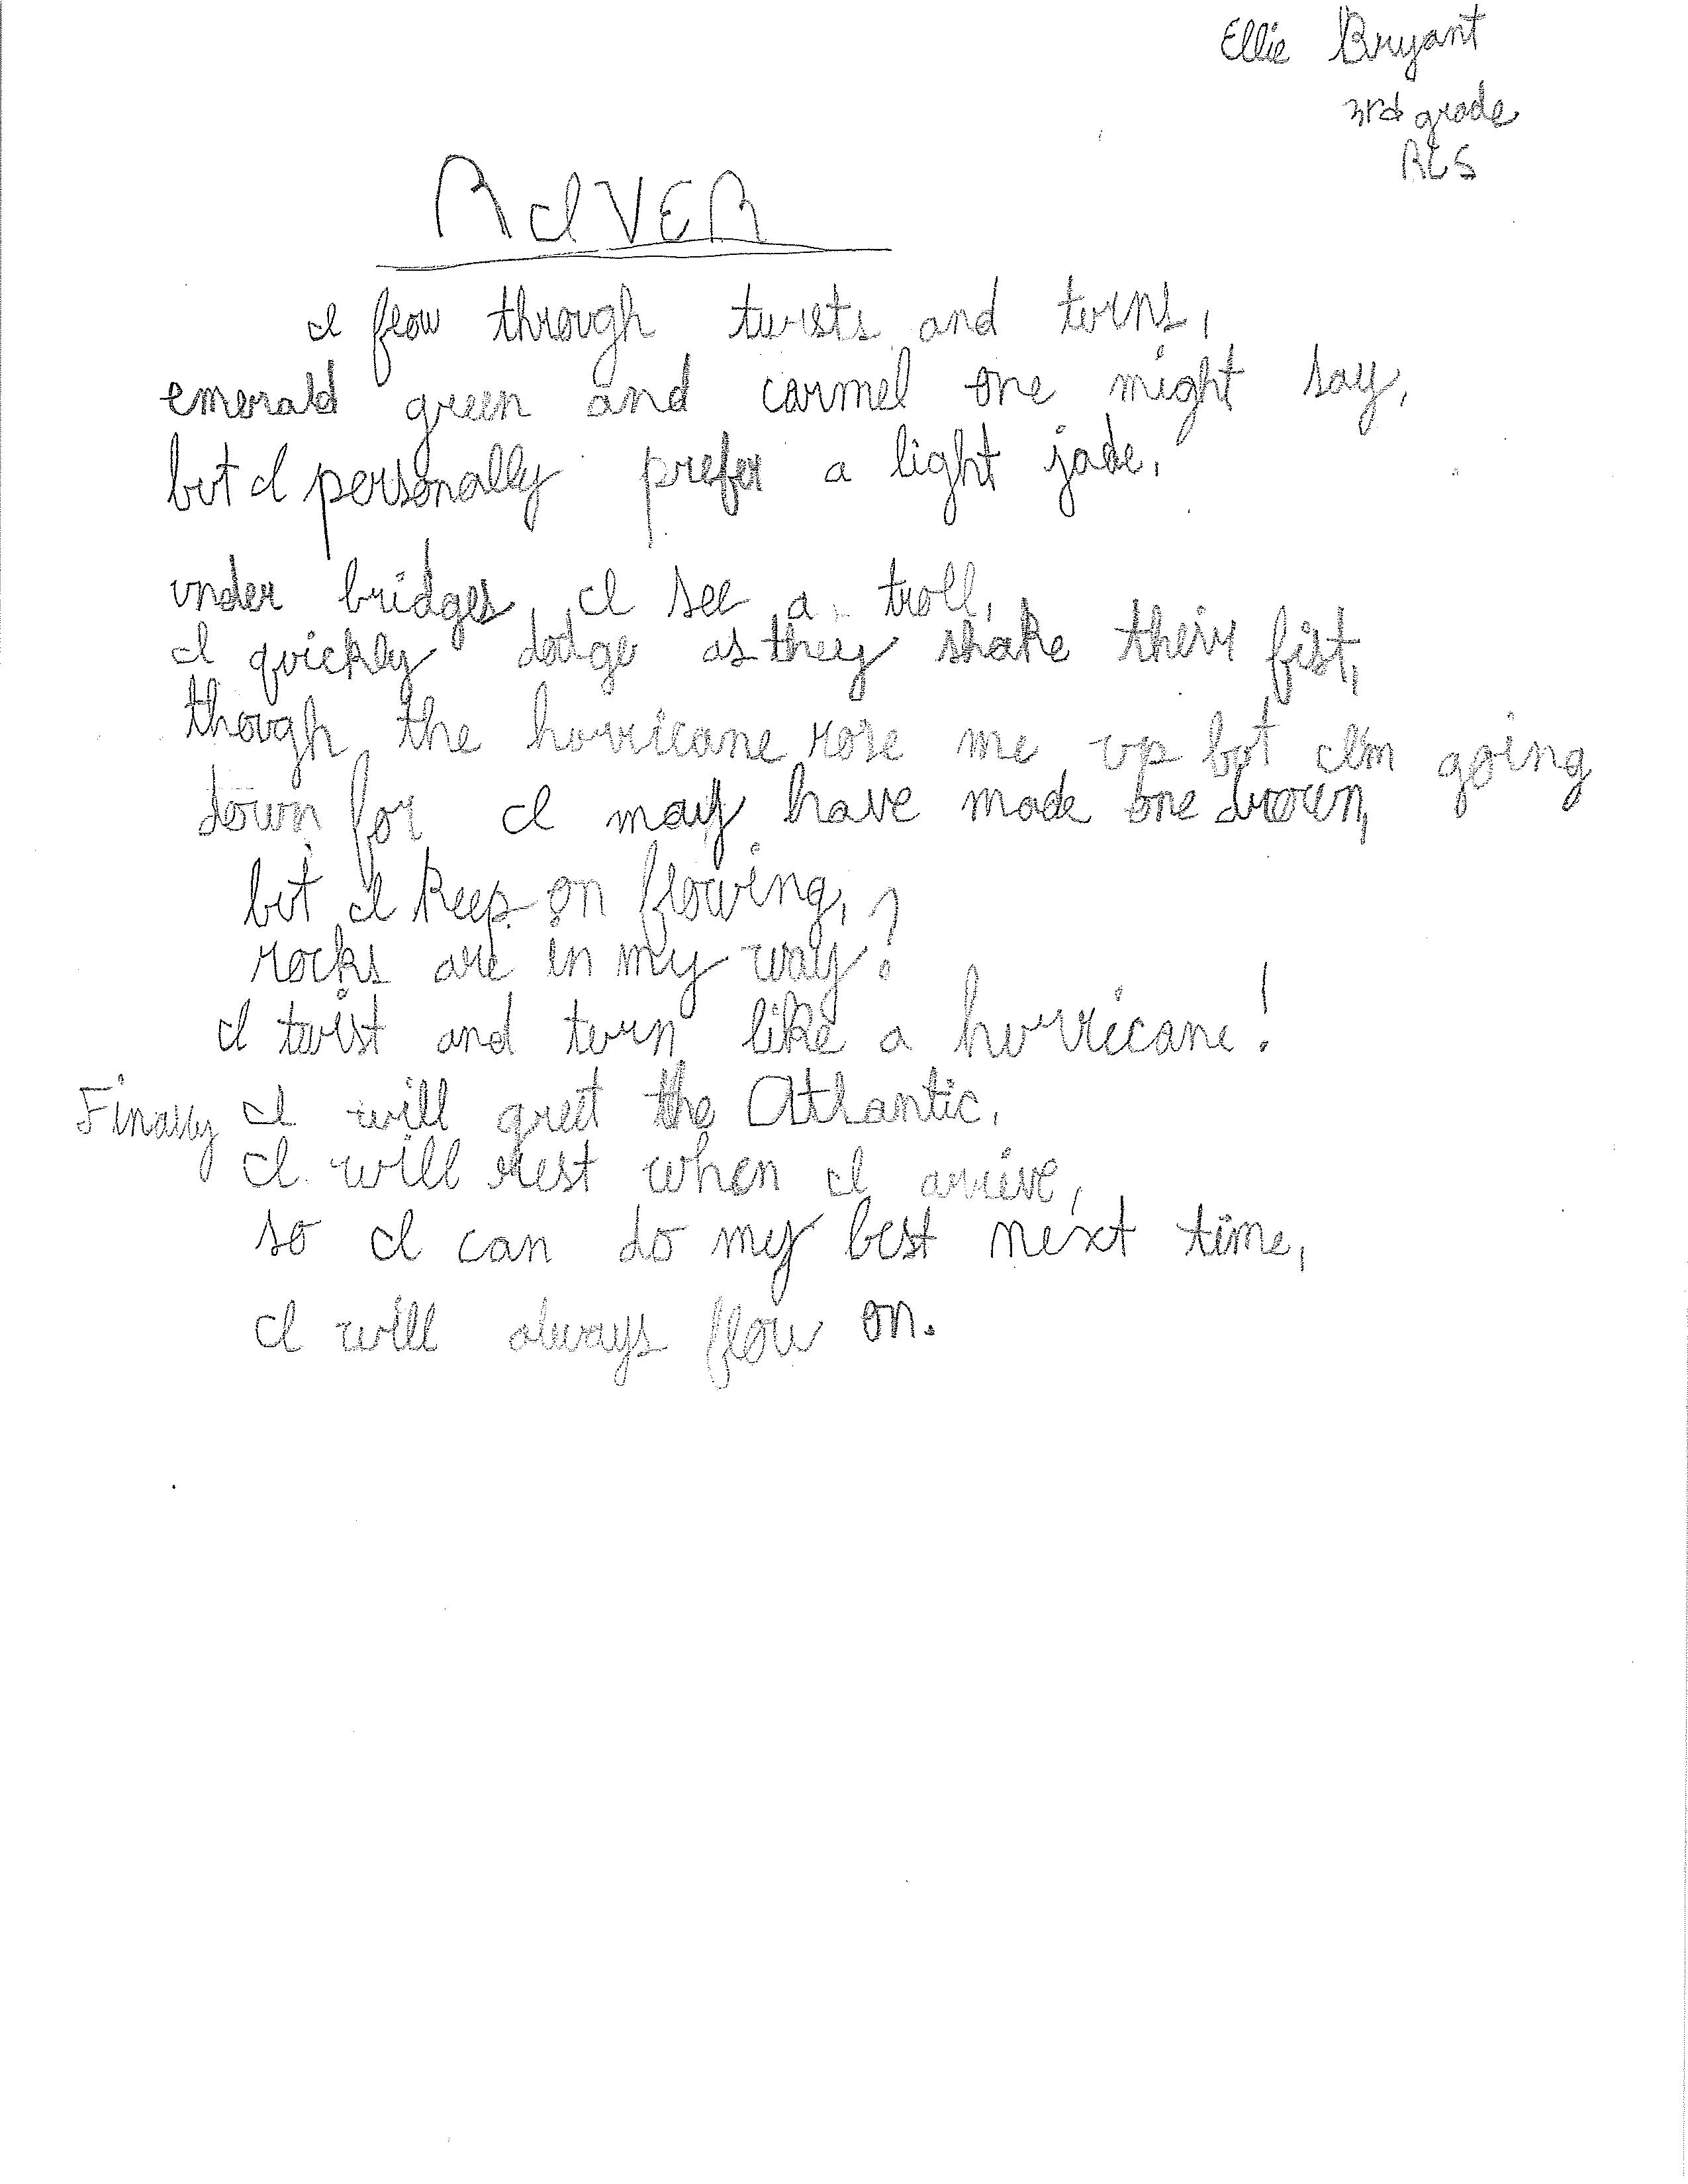 Ellie Bryant
3rd grade
RCS
RIVER
I flow through twists and turns,
emerald green and carmel one might say,
but I personally prefer a light jade.
under bridges I see a troll,
I quickly dodge as they shake their fist,
though the hurricane rose me up but I'm going
down for I may have made one drown,
but I keep on flowing,
rocks are in my way?
I twist and turn like a hurricane!
Finally I will greet the Atlantic,
I will rest when I arrive,
so I can do my best next time,
I will always flow on.